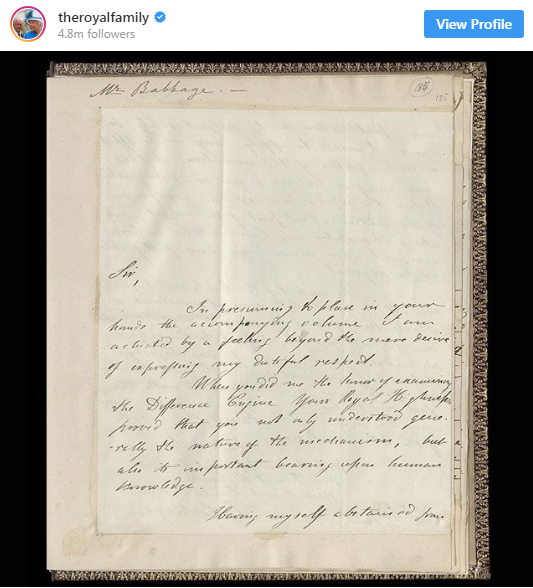 theroyalfamily
4.8m followers
View Profile
Mr. Babbage. —
185
185
Sir,
In presuming to place in your
hands the accompanying volume I am
actuated by a feeling beyond the mere desire
of expressing my dutiful respect.
When you did me the honor of examining
the Difference Engine Your Royal Highness
proved that you not only understood gene-
-rally the nature of the mechanism, but
also its important bearing upon human
knowledge.
Having myself abstained from